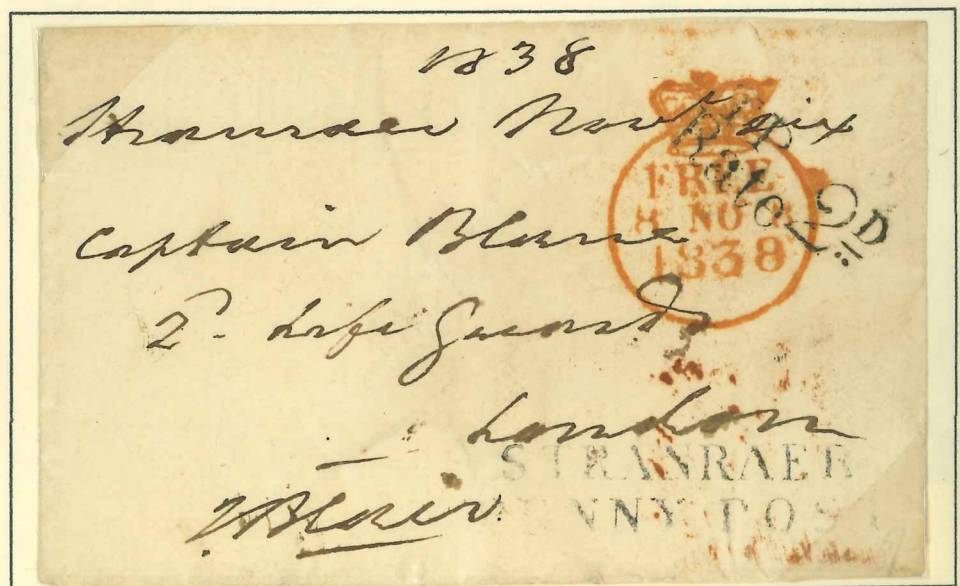 1838
Stranraer Novr six
Captain Blane
2d. Life Guards
London
Blair
T.P
Rate 2D
FREE
8 NO 8
1838
STRANRAER
PENNY POST